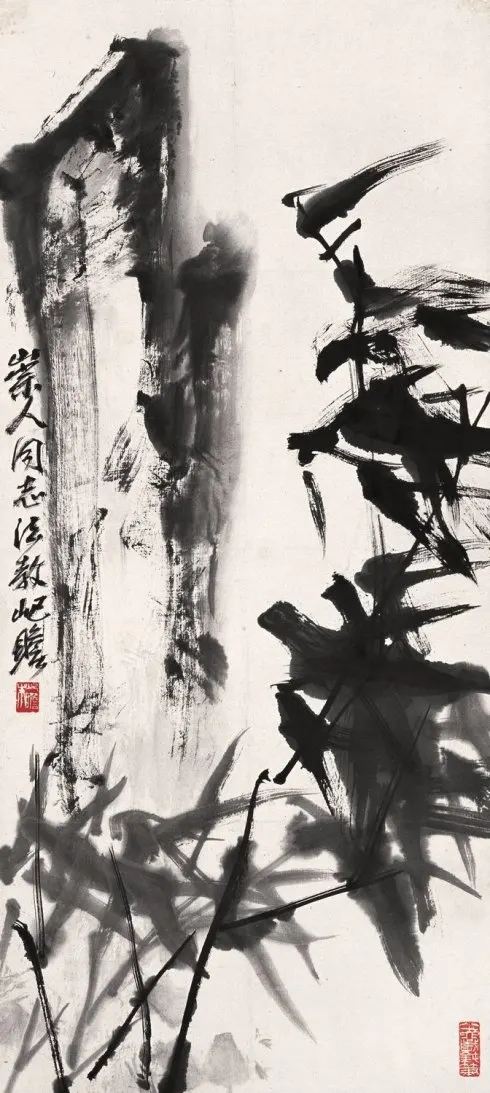 崇人同志法教屺瞻